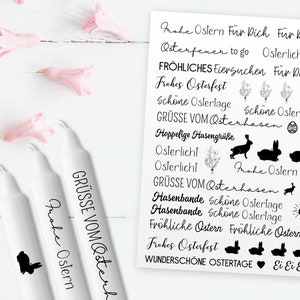 Frohe Ostern Für Dich Für D
Osterfeuer to go Osterlich
FRÖHLICHES Eiersuchen Für D
Frohes Osterfest
Schöne Ostertage Schöne Ostern
GRÜSSE VOM Osterhasen
Hoppelige Hasengrüße
Osterlicht
Osterlicht Frohe Ostern
GRÜSSE VOM Osterhasen
Hasenbande Schöne Ostertage
Hasenbande Schöne Ostertage
Fröhliche Ostern Fröhliche Ostern
Frohes Osterfest
WUNDERSCHÖNE OSTERTAGE Ei Ei Ei
Frohe Ostern
GRÜSSE VOM Osterhasen